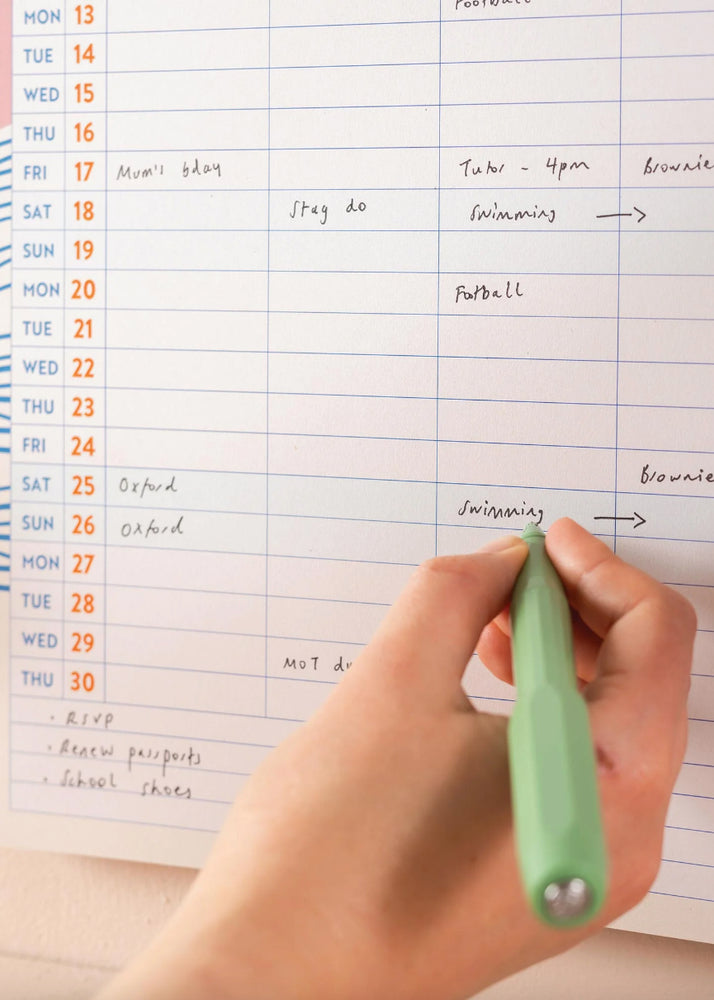 Football
MON 13
TUE 14
WED 15
THU 16
FRI 17 Mum's bday Tutor - 4pm Brownie
SAT 18 Stag do Swimming →
SUN 19
MON 20 Football
TUE 21
WED 22
THU 23
FRI 24 Brownie
SAT 25 Oxford Swimming →
SUN 26 Oxford
MON 27
TUE 28
WED 29 MOT du
THU 30
• RSVP
• Renew passports
• School shoes